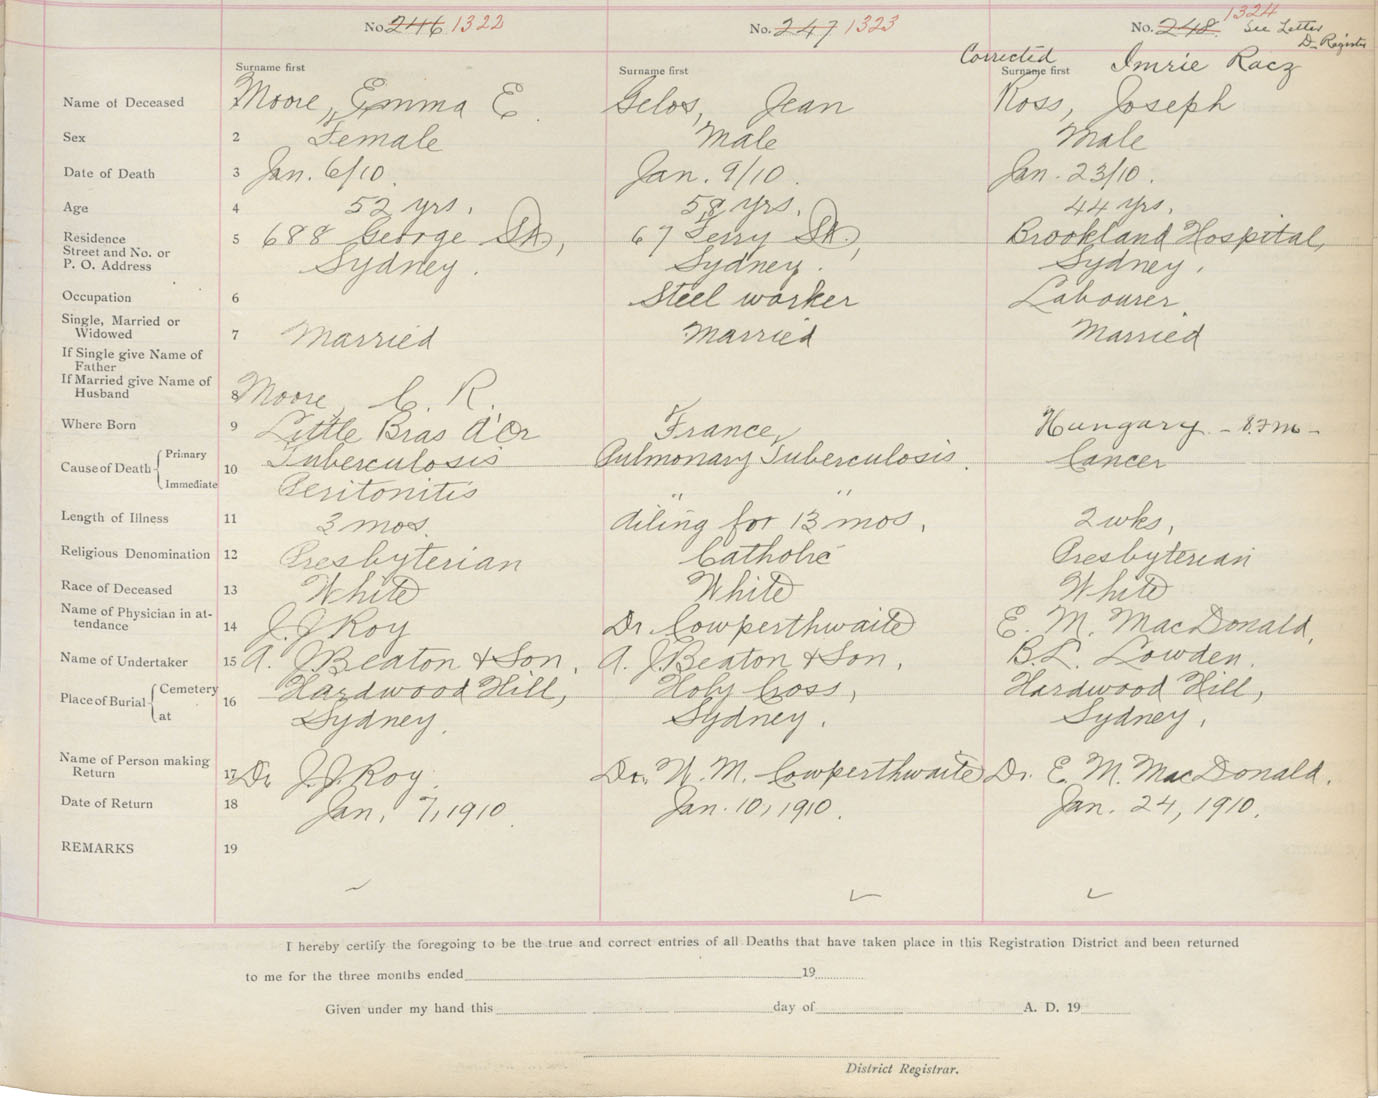 No. 246 1322 No. 247 1323 No. 248 1324 See Letter
D. Register
Corrected Imrie Racz
Surname first Surname first Surname first
Name of Deceased Moore, Emma E. Gelos, Jean Ross, Joseph
Sex 2 Female Male Male
Date of Death 3 Jan. 6/10. Jan. 9/10. Jan. 23/10.
Age 4 52 yrs. 58 yrs. 44 yrs.
Residence
Street and No. or
P. O. Address 5 688 George St., 67 Ferry St., Brookland Hospital,
Sydney. Sydney. Sydney.
Occupation 6 Steel worker Labourer.
Single, Married or
Widowed 7 Married Married Married
If Single give Name of
Father
If Married give Name of
Husband 8 Moore, C. R.
Where Born 9 Little Bras d'Or France, Hungary -
Cause of Death Primary 10 Tuberculosis Pulmonary Tuberculosis. Cancer
Immediate Peritonitis " "
Length of Illness 11 3 mos. Ailing for 13 mos. 2 wks.
Religious Denomination 12 Presbyterian Catholic Presbyterian
Race of Deceased 13 White White White
Name of Physician in at-
tendance 14 J. J. Roy Dr Cowperthwaite E. M. MacDonald,
Name of Undertaker 15 A. J. Beaton & Son. A. J. Beaton & Son. B. L. Lowden.
Place of Burial Cemetery 16 Hardwood Hill, Holy Cross, Hardwood Hill,
at Sydney. Sydney. Sydney.
Name of Person making
Return 17 Dr. J. J. Roy. Dr. W. M. Cowperthwaite Dr. E. M. MacDonald.
Date of Return 18 Jan. 7, 1910. Jan. 10, 1910. Jan. 24, 1910.
REMARKS 19
I hereby certify the foregoing to be the true and correct entries of all Deaths that have taken place in this Registration District and been returned
to me for the three months ended 19
Given under my hand this day of A. D. 19
District Registrar.